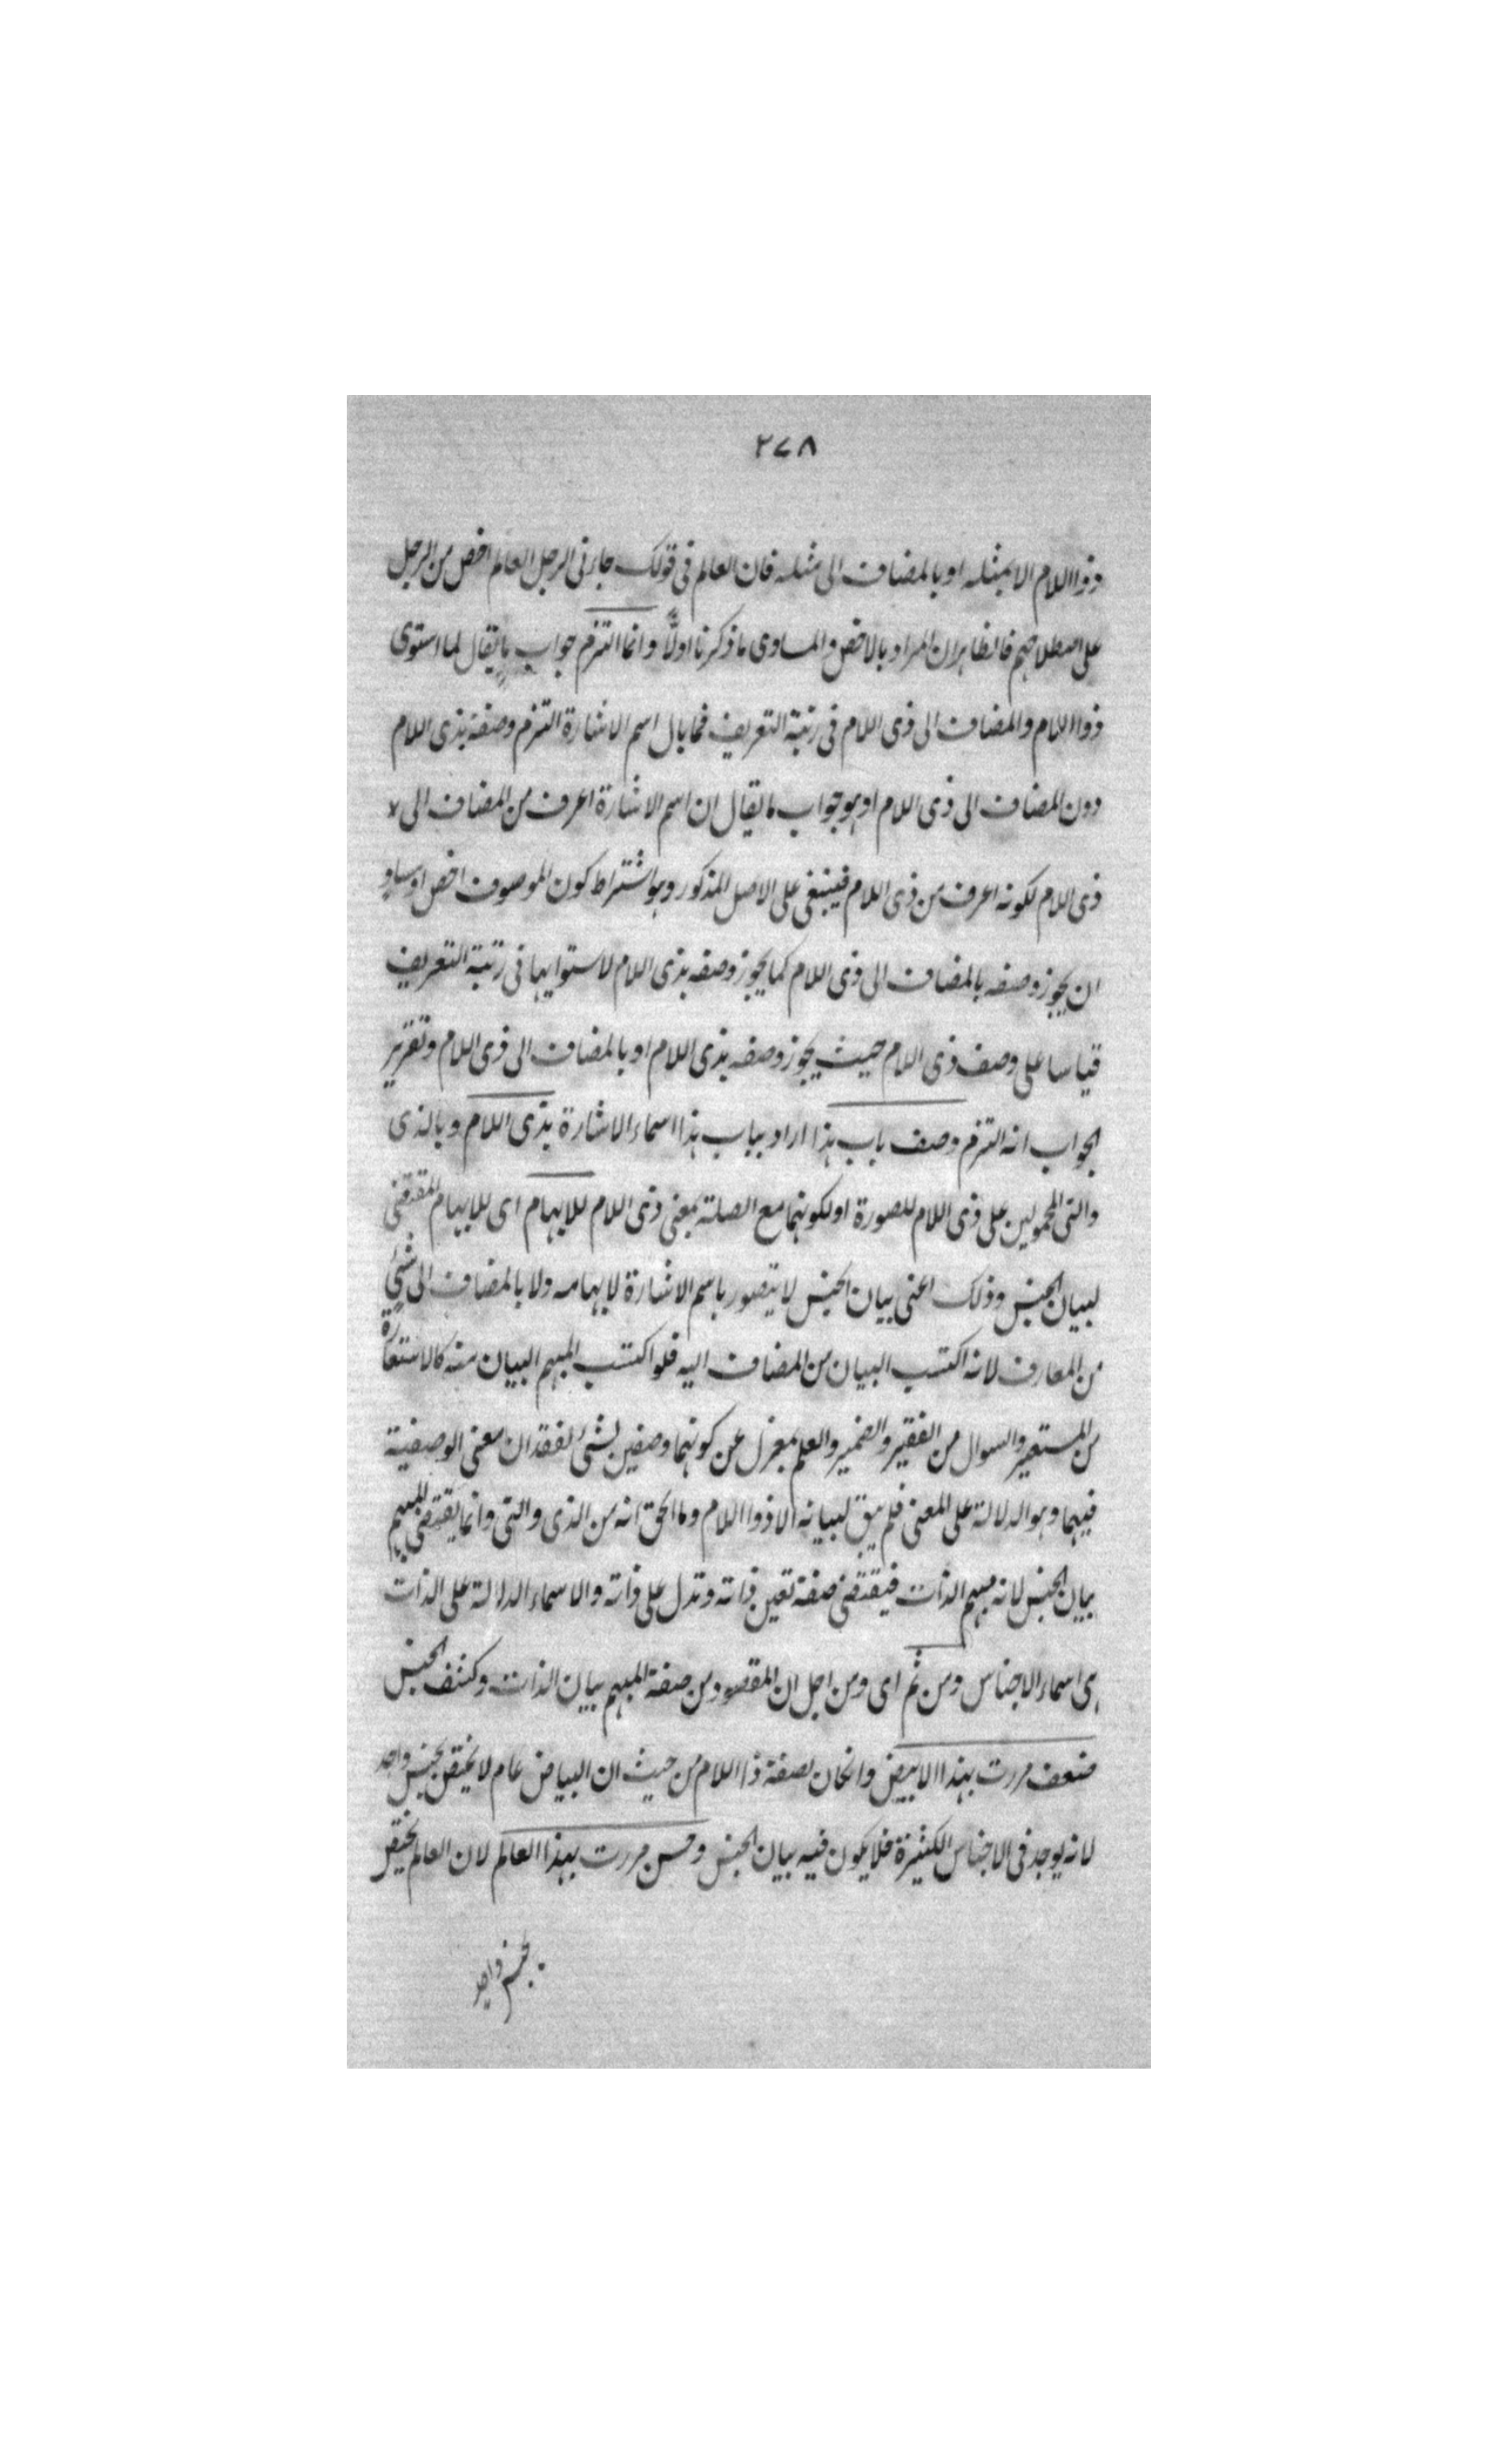 ٢٧٨
ذوا اللام الا بمثله او بالمضاف الى مثله فان العالم فى قولك جارنى الرجل العالم اخص من الرجل
على اصطلاحهم فالظاهر ان المراد بالاخص والمساوى ما ذكرنا اولًا وانما التزم جواب ما يقال لما استوى
ذوا اللام والمضاف الى ذى اللام فى رتبة التعريف فما بال اسم الاشارة التزم وصفة بذى اللام
دون المضاف الى ذى اللام او هو جواب ما يقال ان اسم الاشارة اعرف من المضاف الى لا
ذى اللام لكونه اعرف من ذى اللام فينبغى على الاصل المذكور وهو اشتراط كون الموصوف اخص او مساو
ان يجوز وصفه بالمضاف الى ذى اللام كما يجوز وصفه بذى اللام لاستوايهما فى رتبة التعريف
قياسا على وصف ذى اللام حيث يجوز وصفه بذى اللام او بالمضاف الى ذى اللام وتقرير
الجواب انه التزم وصف باب هذا اراد بباب هذا اسماء الاشارة بذى اللام وبالذى
والتى المحمولين على ذى اللام للصورة او لكونهما مع الصلة بمعنى ذى اللام للابهام اى للابهام المقتضى
لبيان الجنس وذلك اعنى بيان الجنس لا يتصور باسم الاشارة لابهامه ولا بالمضاف الى شئ
من المعارف لانه اكتسب البيان من المضاف اليه فلو اكتسب المبهم البيان منه كالاستعارة
من المستعير والسوال من الفقير والضمير والعلم بمعزل عن كونهما وصفين لشئ لفقدان معنى الوصفية
فيهما وهو الدلالة على المعنى فلم يبق لبيانه الا ذوا اللام وما الحق به من الذى والتى وانما يقتضى المبهم
بيان الجنس لانه مبهم الذات فيقتضى صفة تعين ذاته وتدل على ذاته والاسماء الدلالة على الذات
هى اسماء الاجناس ومن ثم اى ومن اجل ان المقصود من صفة المبهم بيان الذات وكشف الجنس
ضعف مررت بهذا الابيض وان كان بصفة ذا اللام من حيث ان البياض عام لا يختص بجنس واحد
لانه يوجد فى الاجناس الكثيرة فلا يكون فيه بيان الجنس وحسن مررت بهذا العالم لان العالم يختص
بجنس واحد